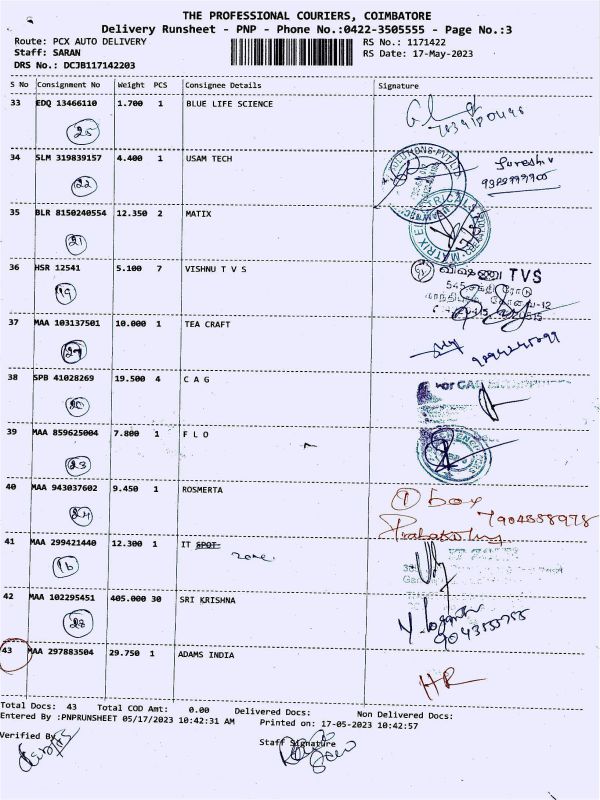 THE PROFESSIONAL COURIERS, COIMBATORE
Delivery Runsheet - PNP - Phone No.:0422-3505555 - Page No.:3
Route: PCX AUTO DELIVERY
RS No.: 1171422
Staff: SARAN
RS Date: 17-May-2023
DRS No.: DCJB117142203
S No Consignment No Weight PCS Consignee Details Signature
33 EDQ 13466110 1.700 1 BLUE LIFE SCIENCE
25
34 SLM 319839157 4.400 1 USAM TECH
Suresh v
22
35 BLR 8150240554 12.350 2 MATIX
21
36 HSR 12541 5.100 7 VISHNU T V S
TVS
19
37 MAA 103137501 10.000 1 TEA CRAFT
38 SPB 41028269 19.500 4 C A G
20
39 MAA 859625004 7.800 1 F L O
23
40 MAA 943037602 9.450 1 ROSMERTA
1 box
7904558978
24
41 MAA 299421440 12.300 1 IT SPOT
zone
16
42 MAA 102295451 405.000 30 SRI KRISHNA
28
43 MAA 297883504 29.750 1 ADAMS INDIA
HR
Total Docs: 43 Total COD Amt: 0.00 Delivered Docs: Non Delivered Docs:
Entered By :PNPRUNSHEET 05/17/2023 10:42:31 AM Printed on: 17-05-2023 10:42:57
Verified By
Staff Signature